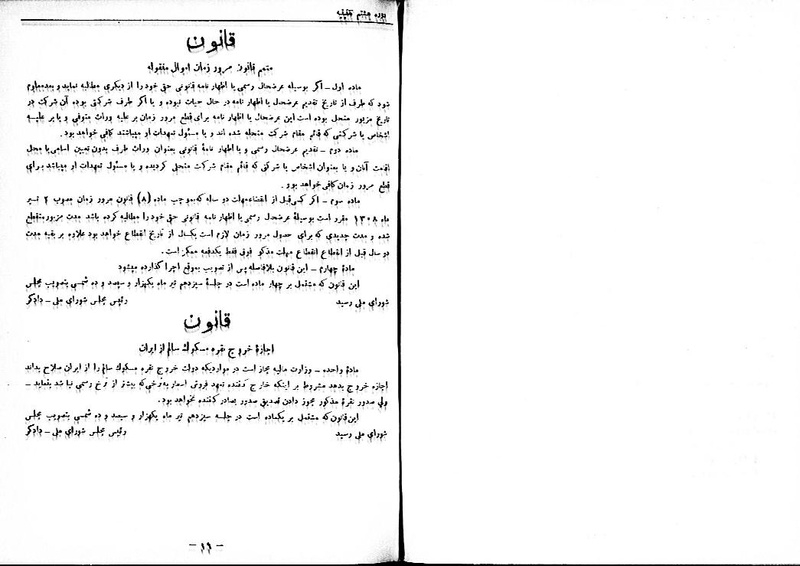 دوره هشتم تقنینیه
قانون
متمم قانون مرور زمان اموال منقوله
ماده اول - اگر بوسیله عرضحال رسمی یا اظهار نامه قانونی حق خود را از دیگری مطالبه نماید و بعد معلوم
شود که طرف از تاریخ تقدیم عرضحال یا اظهار نامه در حال حیات نبوده و یا اگر طرف شرکتی بوده آن شرکت در
تاریخ مزبور منحل بوده است این عرضحال یا اظهار نامه برای قطع مرور زمان بر علیه وراث متوفی و یا بر علیه
اشخاص یا شرکتی که قائم مقام شرکت منحله شده اند و یا مسئول تعهدات او میباشند کافی خواهد بود.
ماده دوم - تقدیم عرضحال رسمی و یا اظهار نامهٔ قانونی بعنوان وراث طرف بدون تعیین اسامی یا محل
اقامت آنان و یا بعنوان اشخاص یا شرکتی که قائم مقام شرکت منحلی گردیده و یا مسئول تعهدات او میباشد برای
قطع مرور زمان کافی خواهد بود.
ماده سوم - اگر کسی قبل از انقضاء مهلت دو ساله که بموجب ماده (۸) قانون مرور زمان مصوب ۲ تیر
ماه ۱۳۰۸ مقرر است بوسیلهٔ عرضحال رسمی یا اظهار نامه قانونی حق خود را مطالبه کرده باشد مدت مزبور منقطع
شده و مدت جدیدی که برای حصول مرور زمان لازم است یکسال از تاریخ انقطاع خواهد بود علاوه بر بقیه مدت
دو سال قبل از انقطاع انقطاع مهلت مذکور فوق فقط یکدفعه ممکن است.
مادهٔ چهارم - این قانون بلافاصله پس از تصویب بموقع اجرا گذارده میشود
این قانون که مشتمل بر چهار ماده است در جلسهٔ سیزدهم تیر ماه یکهزار و سیصد و ده شمسی بتصویب مجلس
شورای ملی رسید رئیس مجلس شورای ملی - دادگر
قانون
اجازهٔ خروج نقره مسکوک سالم از ایران
ماده واحده - وزارت مالیه مجاز است در مواردیکه دولت خروج نقره مسکوک سالم را از ایران صلاح بداند
اجازه خروج بدهد مشروط بر اینکه خارج کننده تعهد فروش اسعار به نرخی که بیشتر از نرخ رسمی نباشد بنماید -
ولی صدور نقرهٔ مذکور مجوز دادن تصدیق صدور بصادر کننده نخواهد بود.
این قانون که مشتمل بر یکماده است در جلسه سیزدهم تیر ماه یکهزار و سیصد و ده شمسی بتصویب مجلس
شورای ملی رسید رئیس مجلس شورای ملی - دادگر